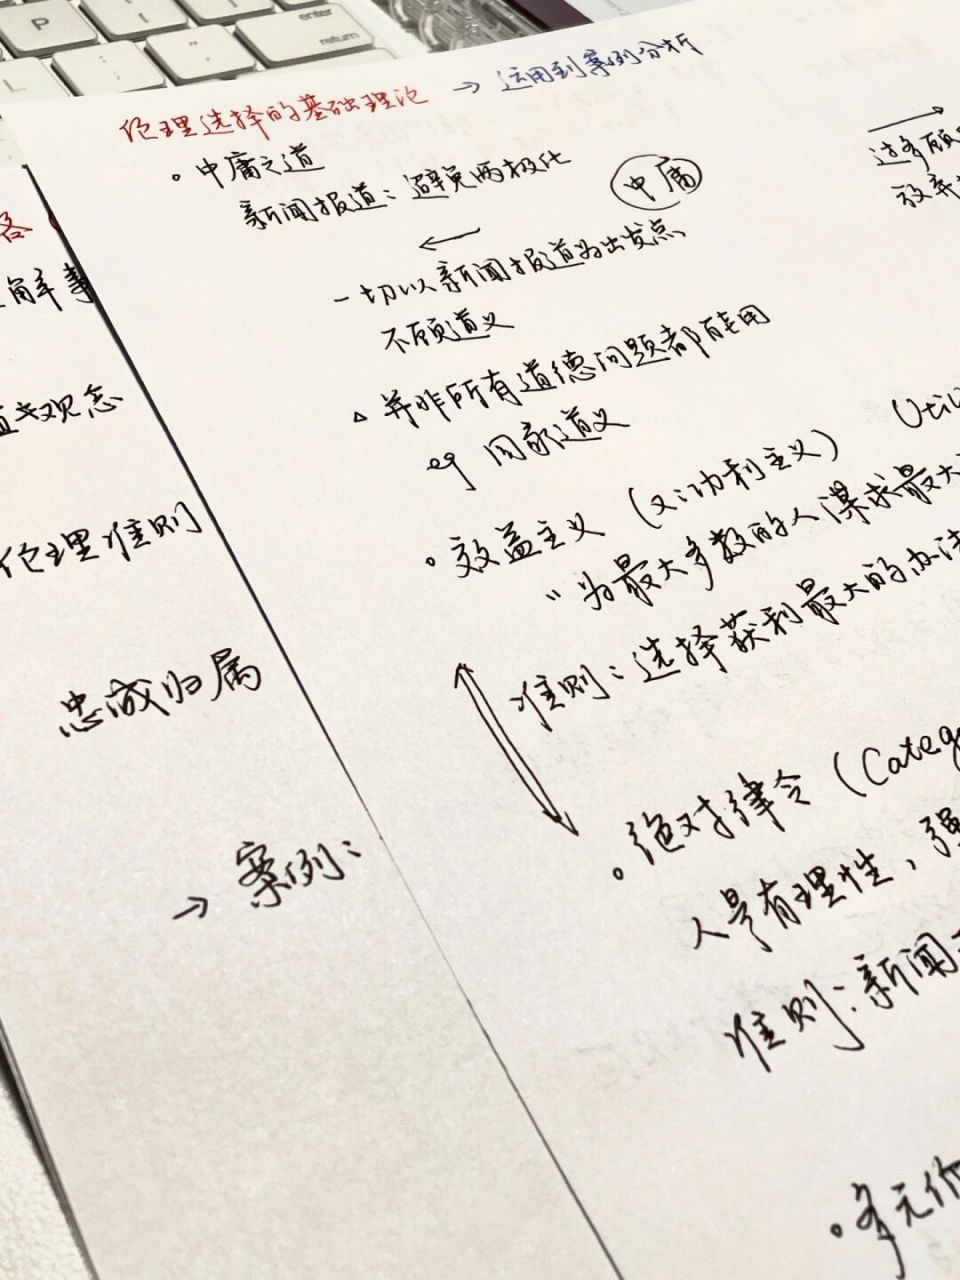 P
enter
return
L
伦理选择的基础理论 → 运用到案例分析
。中庸之道
新闻报道：避免两极化
中庸
←
→
过多顾
放弃
一切以新闻报道为出发点、
不顾道义
△ 并非所有道德问题都能用
eg 国家道义
。效益主义（又：功利主义） Util
"为最大多数的人谋求最大
准则：选择获利最大的办法
。绝对律令（Categ
人是有理性，强
准则：新闻
。多元价
各
解事
观念
伦理准则
忠诚归属
→ 案例：